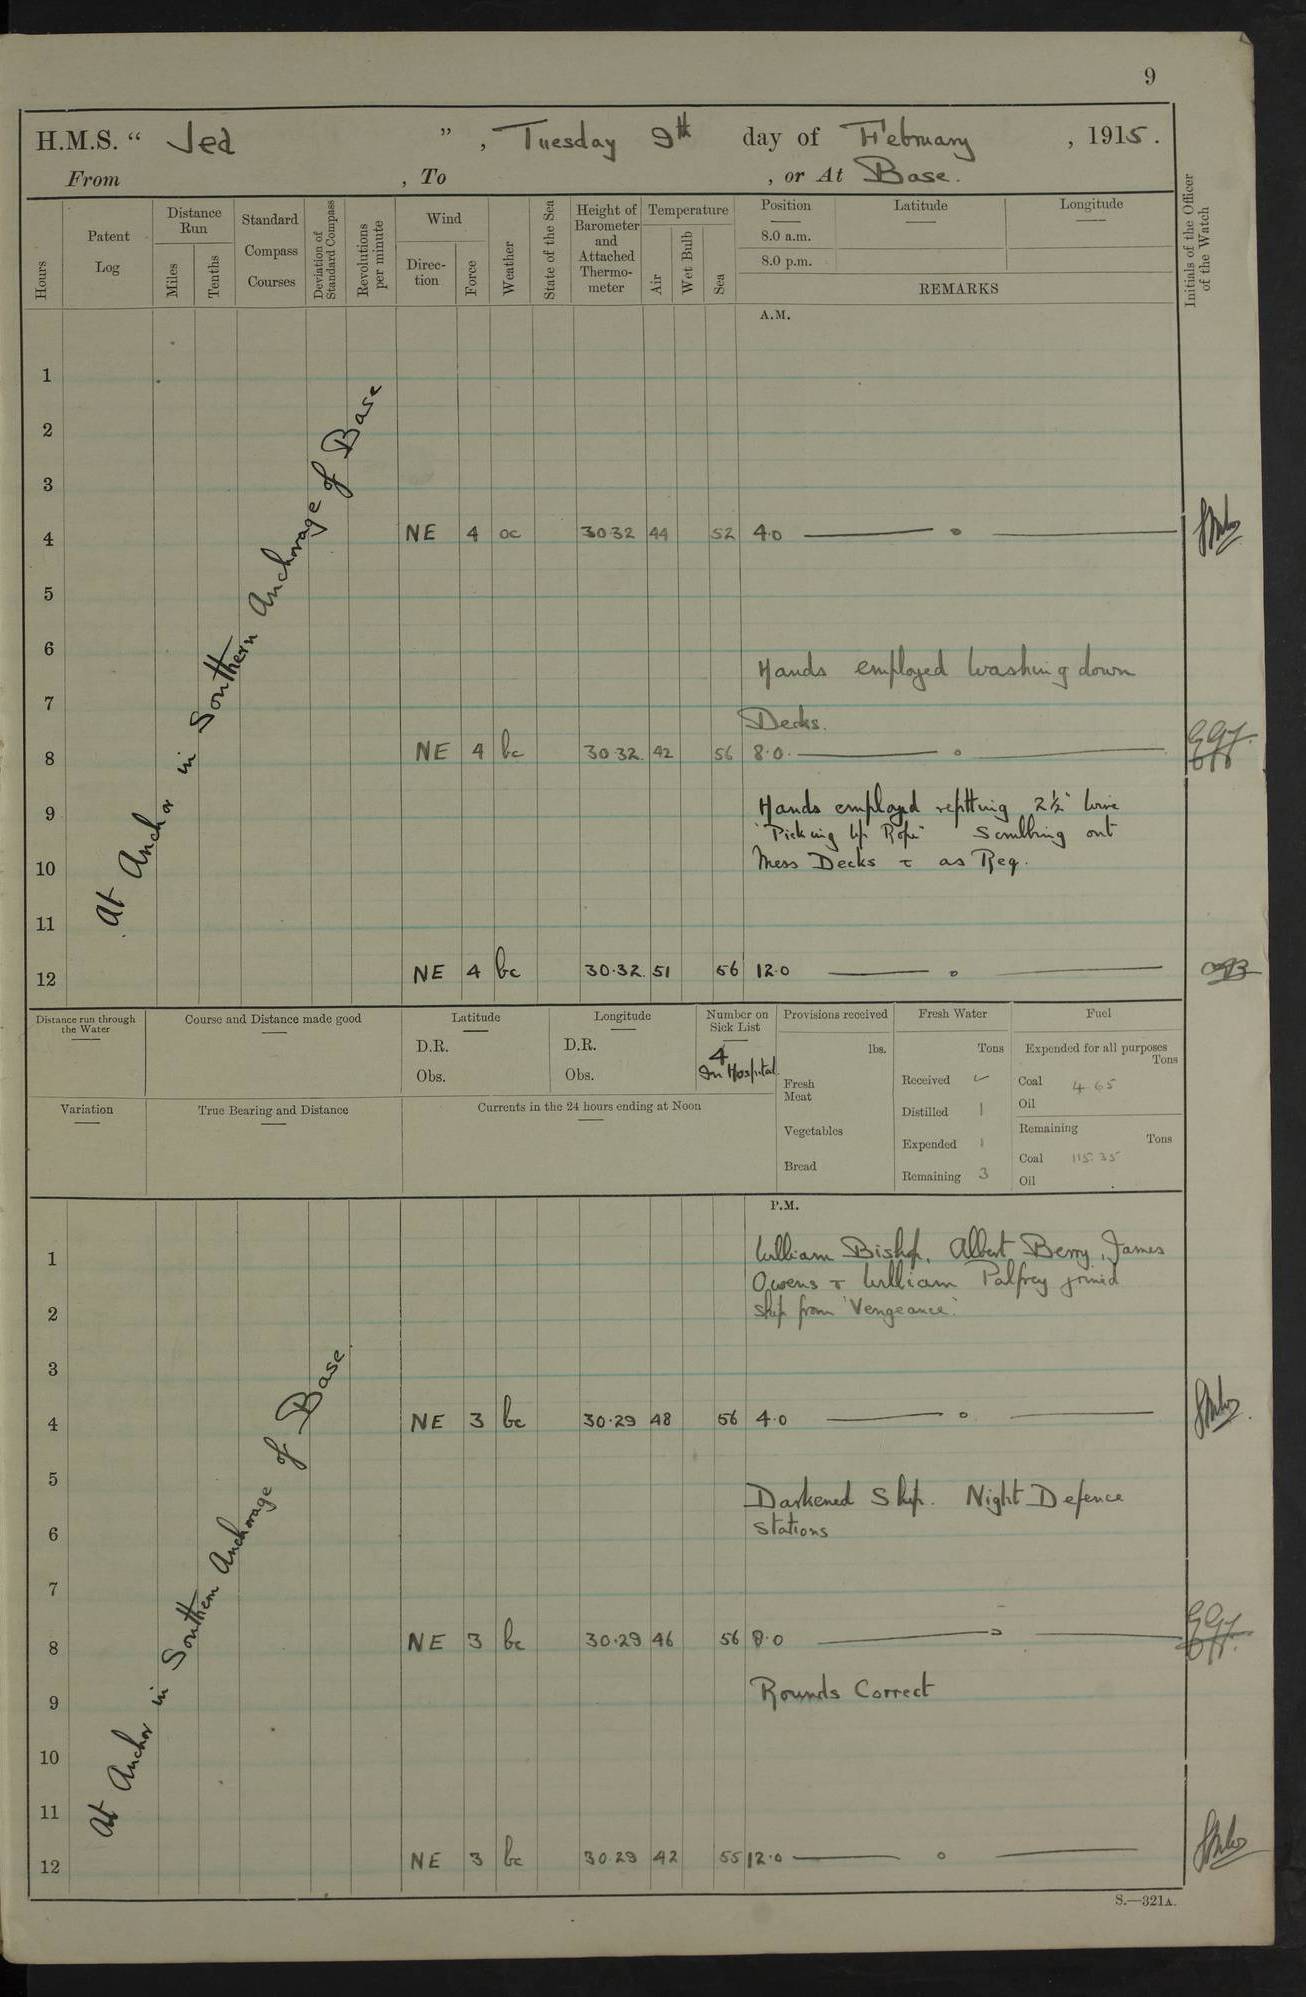 9
H.M.S. “ Jed ”, Tuesday 9th day of February, 1915.
From , To , or At Base.
Hours
Patent Log
Distance Run
Miles
Tenths
Standard Compass Courses
Deviation of Standard Compass
Revolutions per minute
Wind
Direction
Force
Weather
State of the Sea
Height of Barometer and Attached Thermometer
Temperature
Air
Wet Bulb
Sea
Position
8.0 a.m.
8.0 p.m.
Latitude
Longitude
REMARKS
Initials of the Officer of the Watch
A.M.
At Anchor in Southern Anchorage of Base
1
2
3
4 NE 4 oc 30·32 44 52 4·0
5
6
Hands employed washing down
7
Decks.
8 NE 4 bc 30·32 42 56 8·0
9 Hands employed refitting 2½" wire
"Picking Up Rope" Scrubbing out
10 Mess Decks & as Req.
11
12 NE 4 bc 30·32 51 56 12·0
Distance run through the Water
Course and Distance made good
Latitude
D.R.
Obs.
Longitude
D.R.
Obs.
Number on Sick List
4
In Hospital
Provisions received
lbs.
Fresh Meat
Vegetables
Bread
Fresh Water
Tons
Received
Distilled 1
Expended 1
Remaining 3
Fuel
Expended for all purposes
Tons
Coal 4 65
Oil
Remaining
Tons
Coal 115.35
Oil
Variation
True Bearing and Distance
Currents in the 24 hours ending at Noon
P.M.
At Anchor in Southern Anchorage of Base
1 William Bishop, Albert Berry, James
Owens & William Palfrey joined
2 ship from "Vengeance".
3
4 NE 3 bc 30·29 48 56 4·0
5
Darkened Ship. Night Defence
6 Stations
7
8 NE 3 bc 30·29 46 56 8·0
9 Rounds Correct
10
11
12 NE 3 bc 30 29 42 55 12·0
S.—321A.